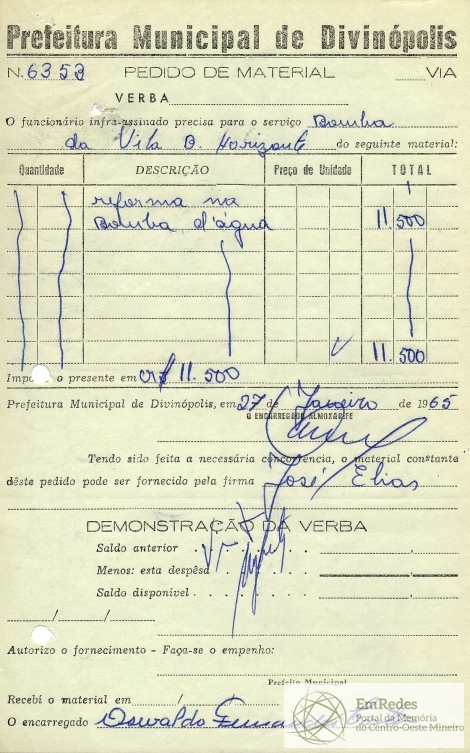 Prefeitura Municipal de Divinópolis
N. 6353 PEDIDO DE MATERIAL VIA
VERBA
O funcionário infra-assinado precisa para o serviço Bomba
da Vila B. Horizonte do seguinte material:
Quantidade DESCRIÇÃO Preço de Unidade TOTAL
reforma na
Bomba d'água 11.500
11.500
o presente em Cr$ 11.500
Prefeitura Municipal de Divinópolis, em 27 de Janeiro de 1965
O ENCARREGADO ALMOXARIFE
Tendo sido feita a necessária concorrência, o material constante
dêste pedido pode ser fornecido pela firma José Elias
DEMONSTRAÇÃO DA VERBA
Saldo anterior
Menos: esta despêsa
Saldo disponível
Autorizo o fornecimento - Faça-se o empenho:
Prefeito Municipal
Recebí o material em
O encarregado Oswaldo
EmRedes
Portal da Memória
do Centro-Oeste Mineiro